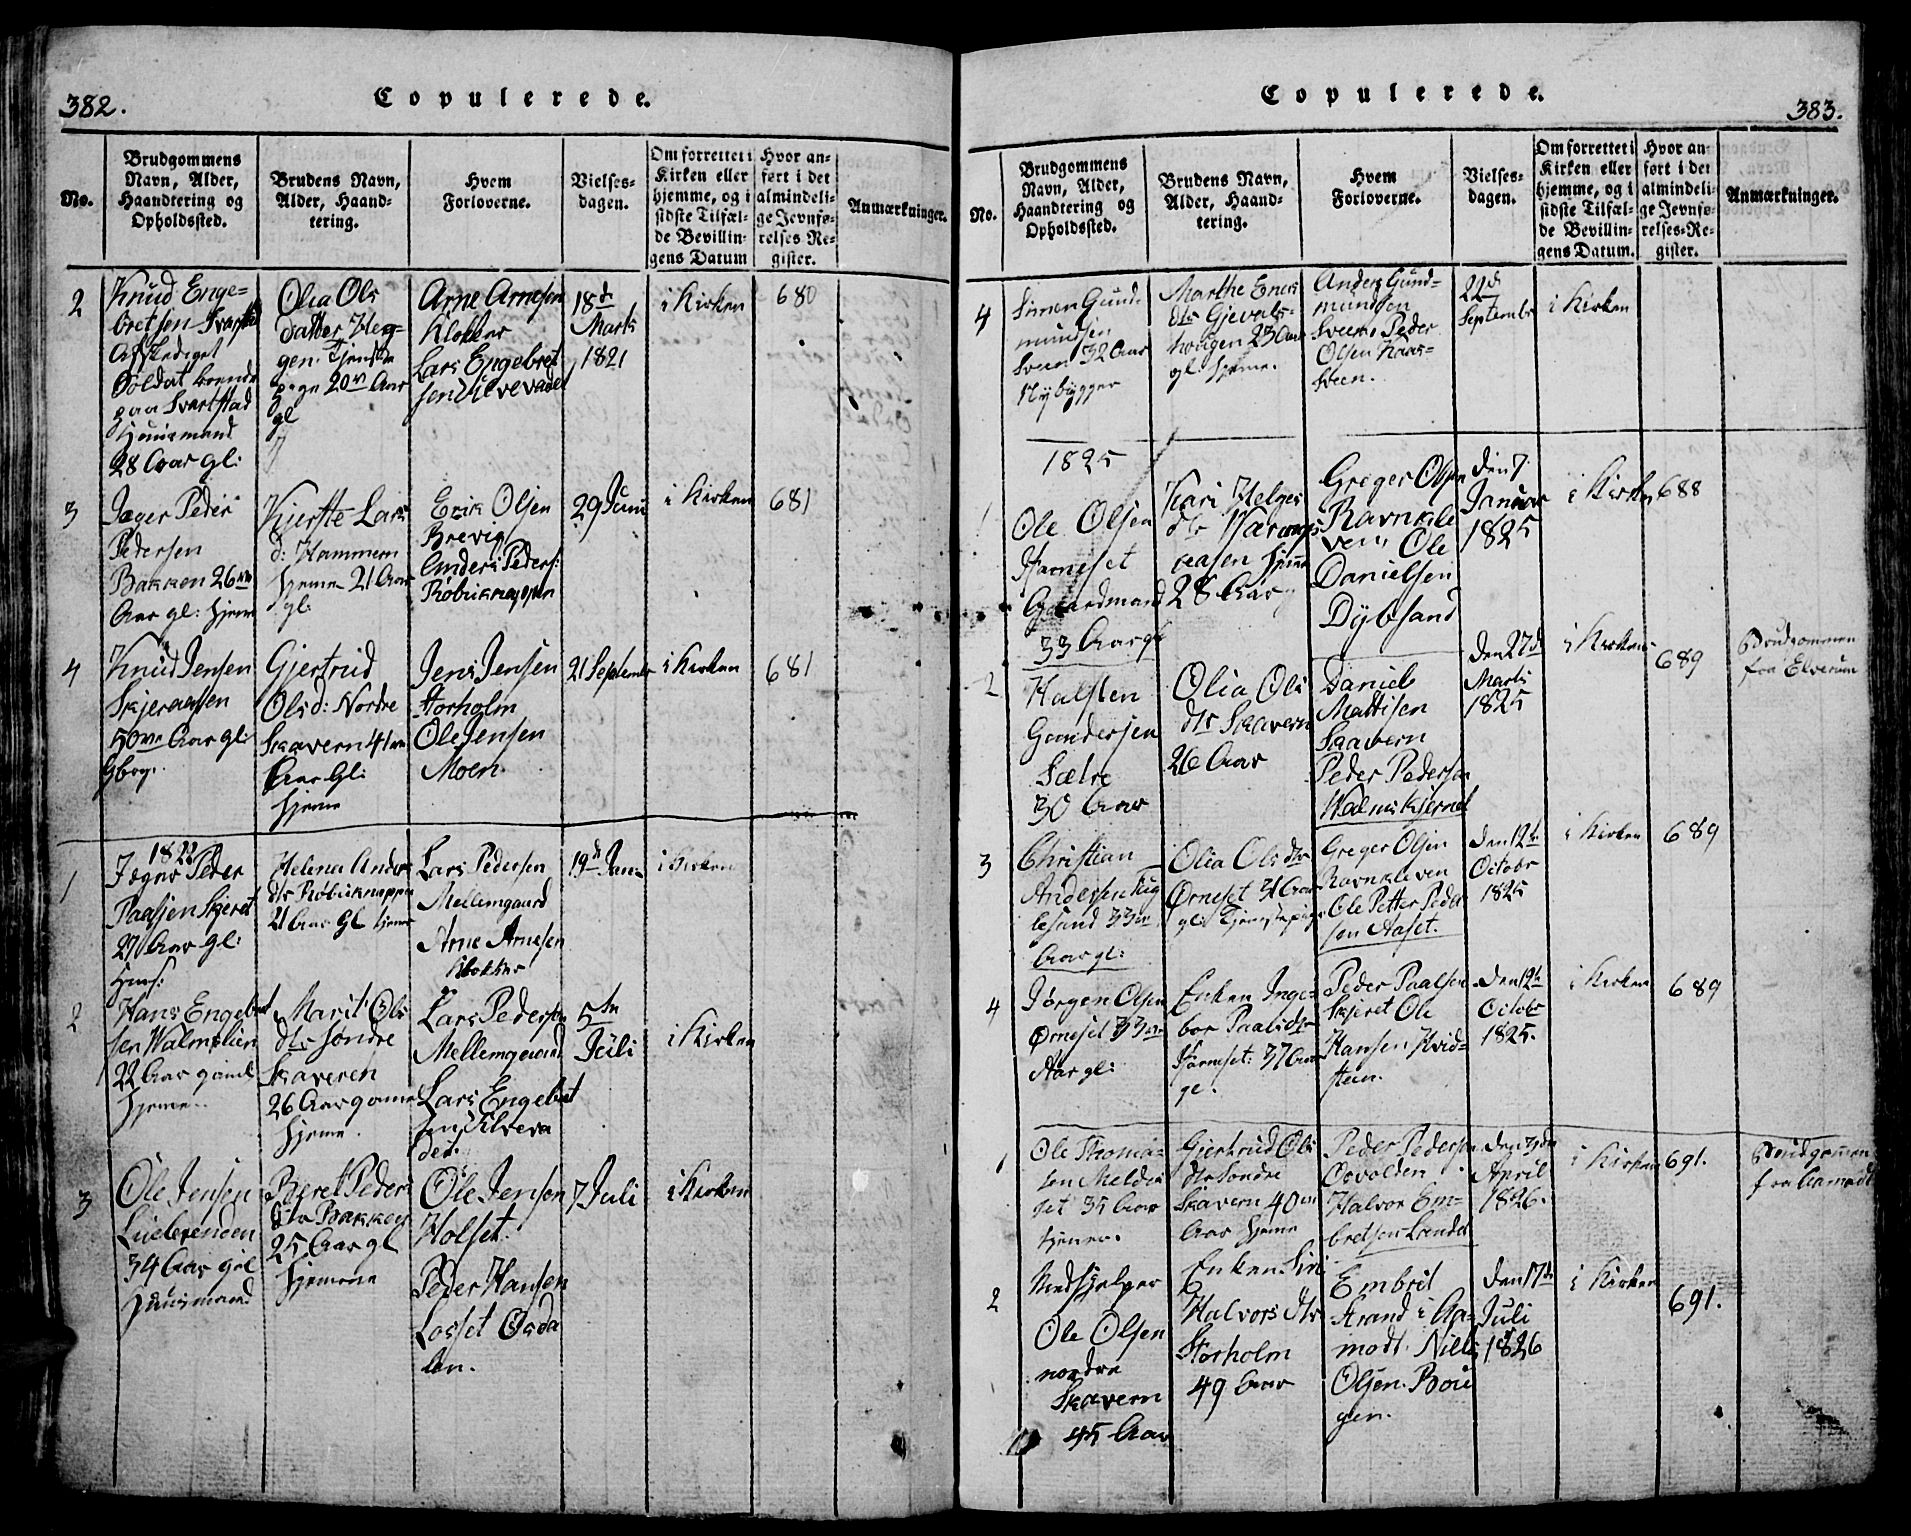 382.
Copulerede.
No.
Brudgommens
Navn, Alder,
Haandtering og
Opholdssted.
Brudens Navn,
Alder, Haand-
tering.
Hvem
Forloverne.
Vielses-
dagen.
Om forrettet i
Kirken eller
hjemme, og i
sidste Tilfæl-
de Bevillin-
gens Datum
Hvor an-
ført i det
almindeli-
ge Jevnfø-
relses-Re-
gister.
Anmærkninger.
2
Knud Enge-
bretsen
Afskediget
Soldat boende
paa Svartstad
Huusmand
28 Aar gl:
Olia Ols
Datter Heg-
gen. Tjeneste
pige 20 Aar
gl
Arne Arnesen
Klokker
Lars Engebret
sen Ulvevadet
18de
Marts
1821
i Kirken
680
3
Jæger Peder
Pedersen
Bakken 26
Aar gl: hjeme
Kjerstie Lars
d: Hammern
hjeme 21 Aar
gl.
Erik Olsen
Brevig
Anders Peders:
Røbuknappen
29 Juni
i Kirken
681
4
Knud Jensen
Skjeraasen
50 Aar gl:
Gbrgr.
Gjertrud
Olsd: Nordre
Skavern 41
Aar Gl:
hjeme
Jens Jensen
Storholm
Ole Jensen
Moen.
21 September
i Kirken
681
1822
1
Jæger Peder
Paalsen Skjeret
27 Aar gl:
Huus:
Helena Anders
dtr Røbuknappen
21 Aar Gl hjeme
Lars Pedersen
Mellemgaard
Arne Arnesen
Klokker
19de Jan:
i Kirken
2
Hans Engebret
sen Malmslien
22 Aar gaml
hjeme.
Marit Ols
dtr Søndre
Skaveren
26 Aar gamel
hjeme.
Lars Pedersen
Mellemgaard
Lars Engebret
sen Ulveva
det.
5te
Juli
i Kirken
3
Ole Jensen
34 Aar gl
Huusmand
Beret Peders
dtr Bakken
25 Aar gl
hjemme
Ole Jensen
Holset.
Peder Hansen
Losset Osda
len.
7 Juli
i Kirken
383.
Copulerede.
No.
Brudgommens
Navn, Alder,
Haandtering og
Opholdssted.
Brudens Navn,
Alder, Haand-
tering.
Hvem
Forloverne.
Vielses-
dagen.
Om forrettet i
Kirken eller
hjemme, og i
sidste Tilfæl-
de Bevillin-
gens Datum.
Hvor an-
ført i det
almindeli-
ge Jevnfø-
relses-Re-
gister.
Anmærkninger.
4
Simen Gund-
mundsen
Sveen 32 Aar
Nybygger
Marthe Eriks
dtr Gjevals-
hougen 23 Aar
gl. hjeme.
Anders Gund-
mundsen
Sveen. Peder
Olsen Kaas-
sveen.
22de
September
i Kirken
1825
1
Ole Olsen
Forneset
Gaardmand
33 Aar gl
Kari Helges
dtr Værangs
aasen hjeme
28 Aar
Greger Olsen
Ravnkle
ven, Ole
Danielsen
Dybsand
den 7
Januar
1825
i Kirken
688
2
Halsten
Gundersen
Sætre
30 Aar
Olia Ols
dtr Skavern
26 Aar
Daniels
Mattisen
Skavern
Peder Pedersen
Walmekjernet
den 27de
Marts
1825
i Kirken
689
Brudgommen
fra Elverum
3
Christian
Andersen Kug
lesund 33
Aar gl:
Olia Ols dtr
Ørneset 31 Aar
gl: Tjenestepige
Greger Olsen
Ravnkleven
Ole Petter Peder
sen Aaset.
den 12te
Octobr
1825
i Kirken
689
4
Jørgen Olsen
Ørneset 33
Aar gl:
Enken Inge-
bor Paals dtr
Forneset: 37 Aar
gl.
Peder Paalsen
Skjeret Ole
Hansen Hvid-
steen.
den 12te
Octobr
1825.
i Kirken
689
1
Ole Thoma-
sen Meldie
set 35 Aar
tjener.
Gjertrud Ols
dtr Søndre
Skavern 40
Aar hjeme
Peder Pedersen
Osvolden
Halvor Em-
bretsen Trondet
den
April
1826.
i Kirken
691.
Brudgommen
fra Aamodt
2
Medhjelper
Ole Olsen
nordre
Skavern
45 Aar
Enken Siri
Halvors dtr
Storholm
49 Aar
Embret
Strand i Aa-
modt. Nills
Olsen. Bou
gen.
den 17de
Juli
1826
i Kirken
691.